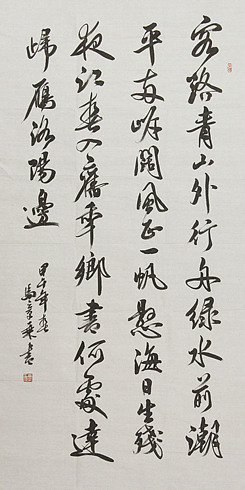 客路青山外行舟綠水前潮
平兩岸闊風正一帆懸海日生殘
夜江春入舊年鄉書何處達
歸雁洛陽邊
甲午年春
馬書